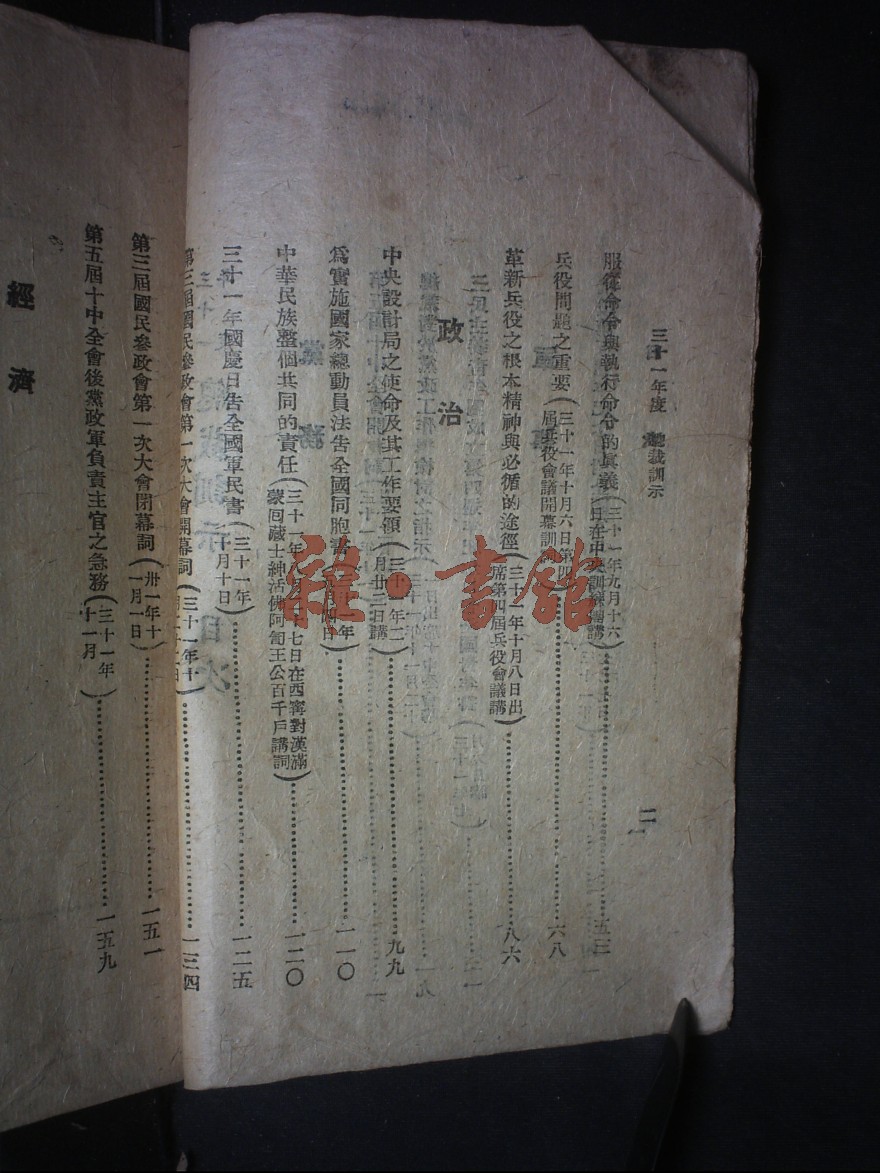 三十一年度 總裁訓示
二
服從命令與執行命令的眞義(三十一年九月十六日在中央訓練團講)五三
兵役問題之重要(三十一年十月六日第四屆兵役會議開幕訓詞)六八
革新兵役之根本精神與必循的途徑(三十一年十月八日出席第四屆兵役會議講)八六
政治
中央設計局之使命及其工作要領(三十一年二月廿三日講)九九
爲實施國家總動員法告全國同胞書一一〇
中華民族整個共同的責任(三十一年八月二十七日在西寧對漢滿蒙回藏士紳活佛阿訇王公百千戶講詞)一二〇
三十一年國慶日告全國軍民書(三十一年十月十日)一二五
第三屆國民參政會第一次大會開幕詞(三十一年十月二十二日)一三四
第三屆國民參政會第一次大會閉幕詞(卅一年十一月一日)一五一
第五屆十中全會後黨政軍負責主官之急務(三十一年十一月)一五九
經濟
雜·書館